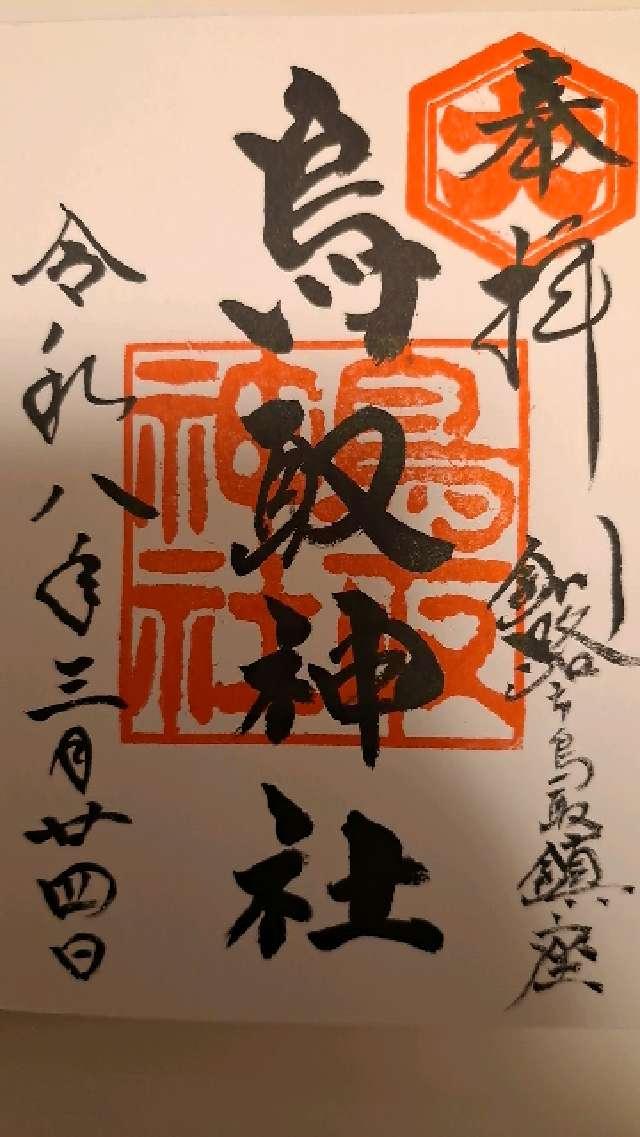 奉拝
釧路市鳥取鎮座
鳥取神社
鳥取神社
令和八年三月廿四日